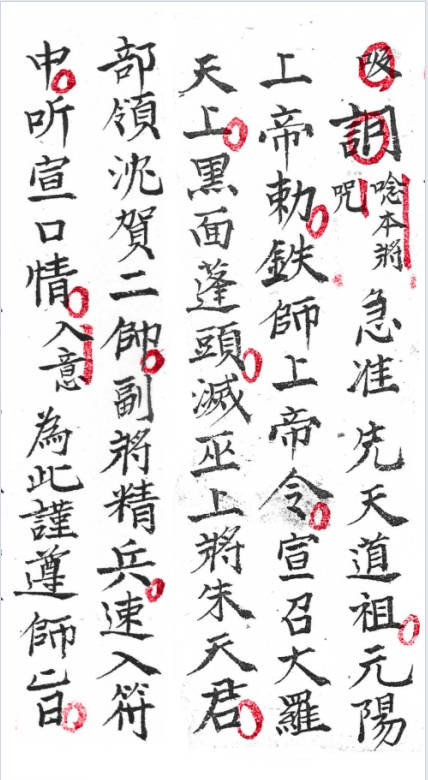 吸 唸本將咒 急准先天道祖元陽
上帝勅鉄師上帝令宣召大羅
天上黑面蓬頭滅巫上將朱天君
部領沈賀二帥副將精兵速入符
中听宣口情入意為此謹遵師旨